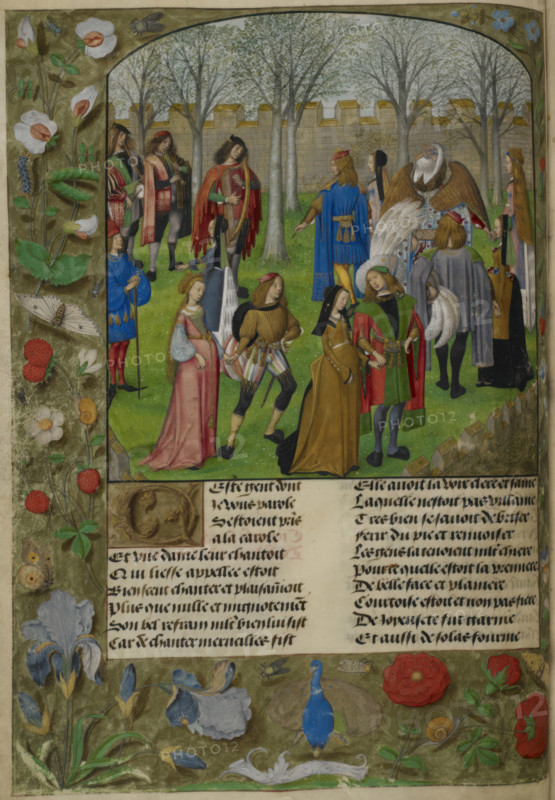 Ceste gent dont
Je vous parole
Sestoient pris
a la carole
Et vne dame leur chantoit
Qui liesse appellee estoit
Bien sceut chanter et plaisãment
Plus que nulle et mignotemẽt
Son bel refrain mlt bien luy sist
Car de chanter merueilles fist
Elle auoit la voix clere et saine
Laquelle nestoit pas villaine
Tres bien se sauoit debriser
Ferir du pie et renuoiser
Les gens la tenoient mlt chiere
Pource quelle estoit la premiere
De belle face et planiere
Courtoise estoit et non pas fiere
De
Et aussi de solas fournie
PHOTO12
PHOTO12
PHOTO12
PHOTO12
PHOTO12
PHOTO12